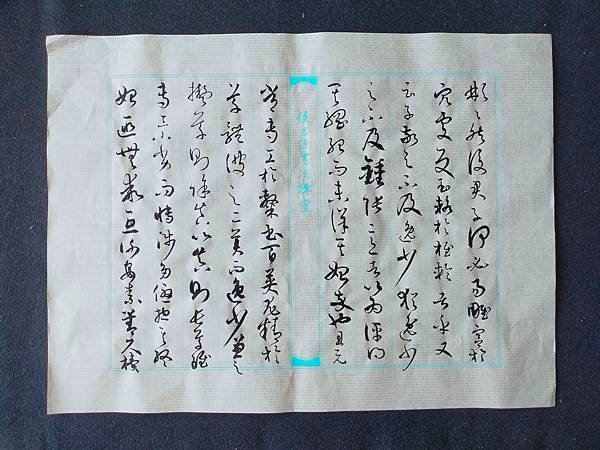 彬〻然後君子何必易雕宮於
穴處反玉輅於椎輪者乎又
云子敬之不及逸少猶逸少
之不及鍾張意者以為評得
其綱紀而未詳其始卒也且元
侯吉諒書法講堂
常專工於隸書百英尤精於
草體彼之二美而逸少兼之
擬草則餘真比真則長草雖
專工小劣而博涉多優揔其終
始匪無乖互謝安素善尺牘